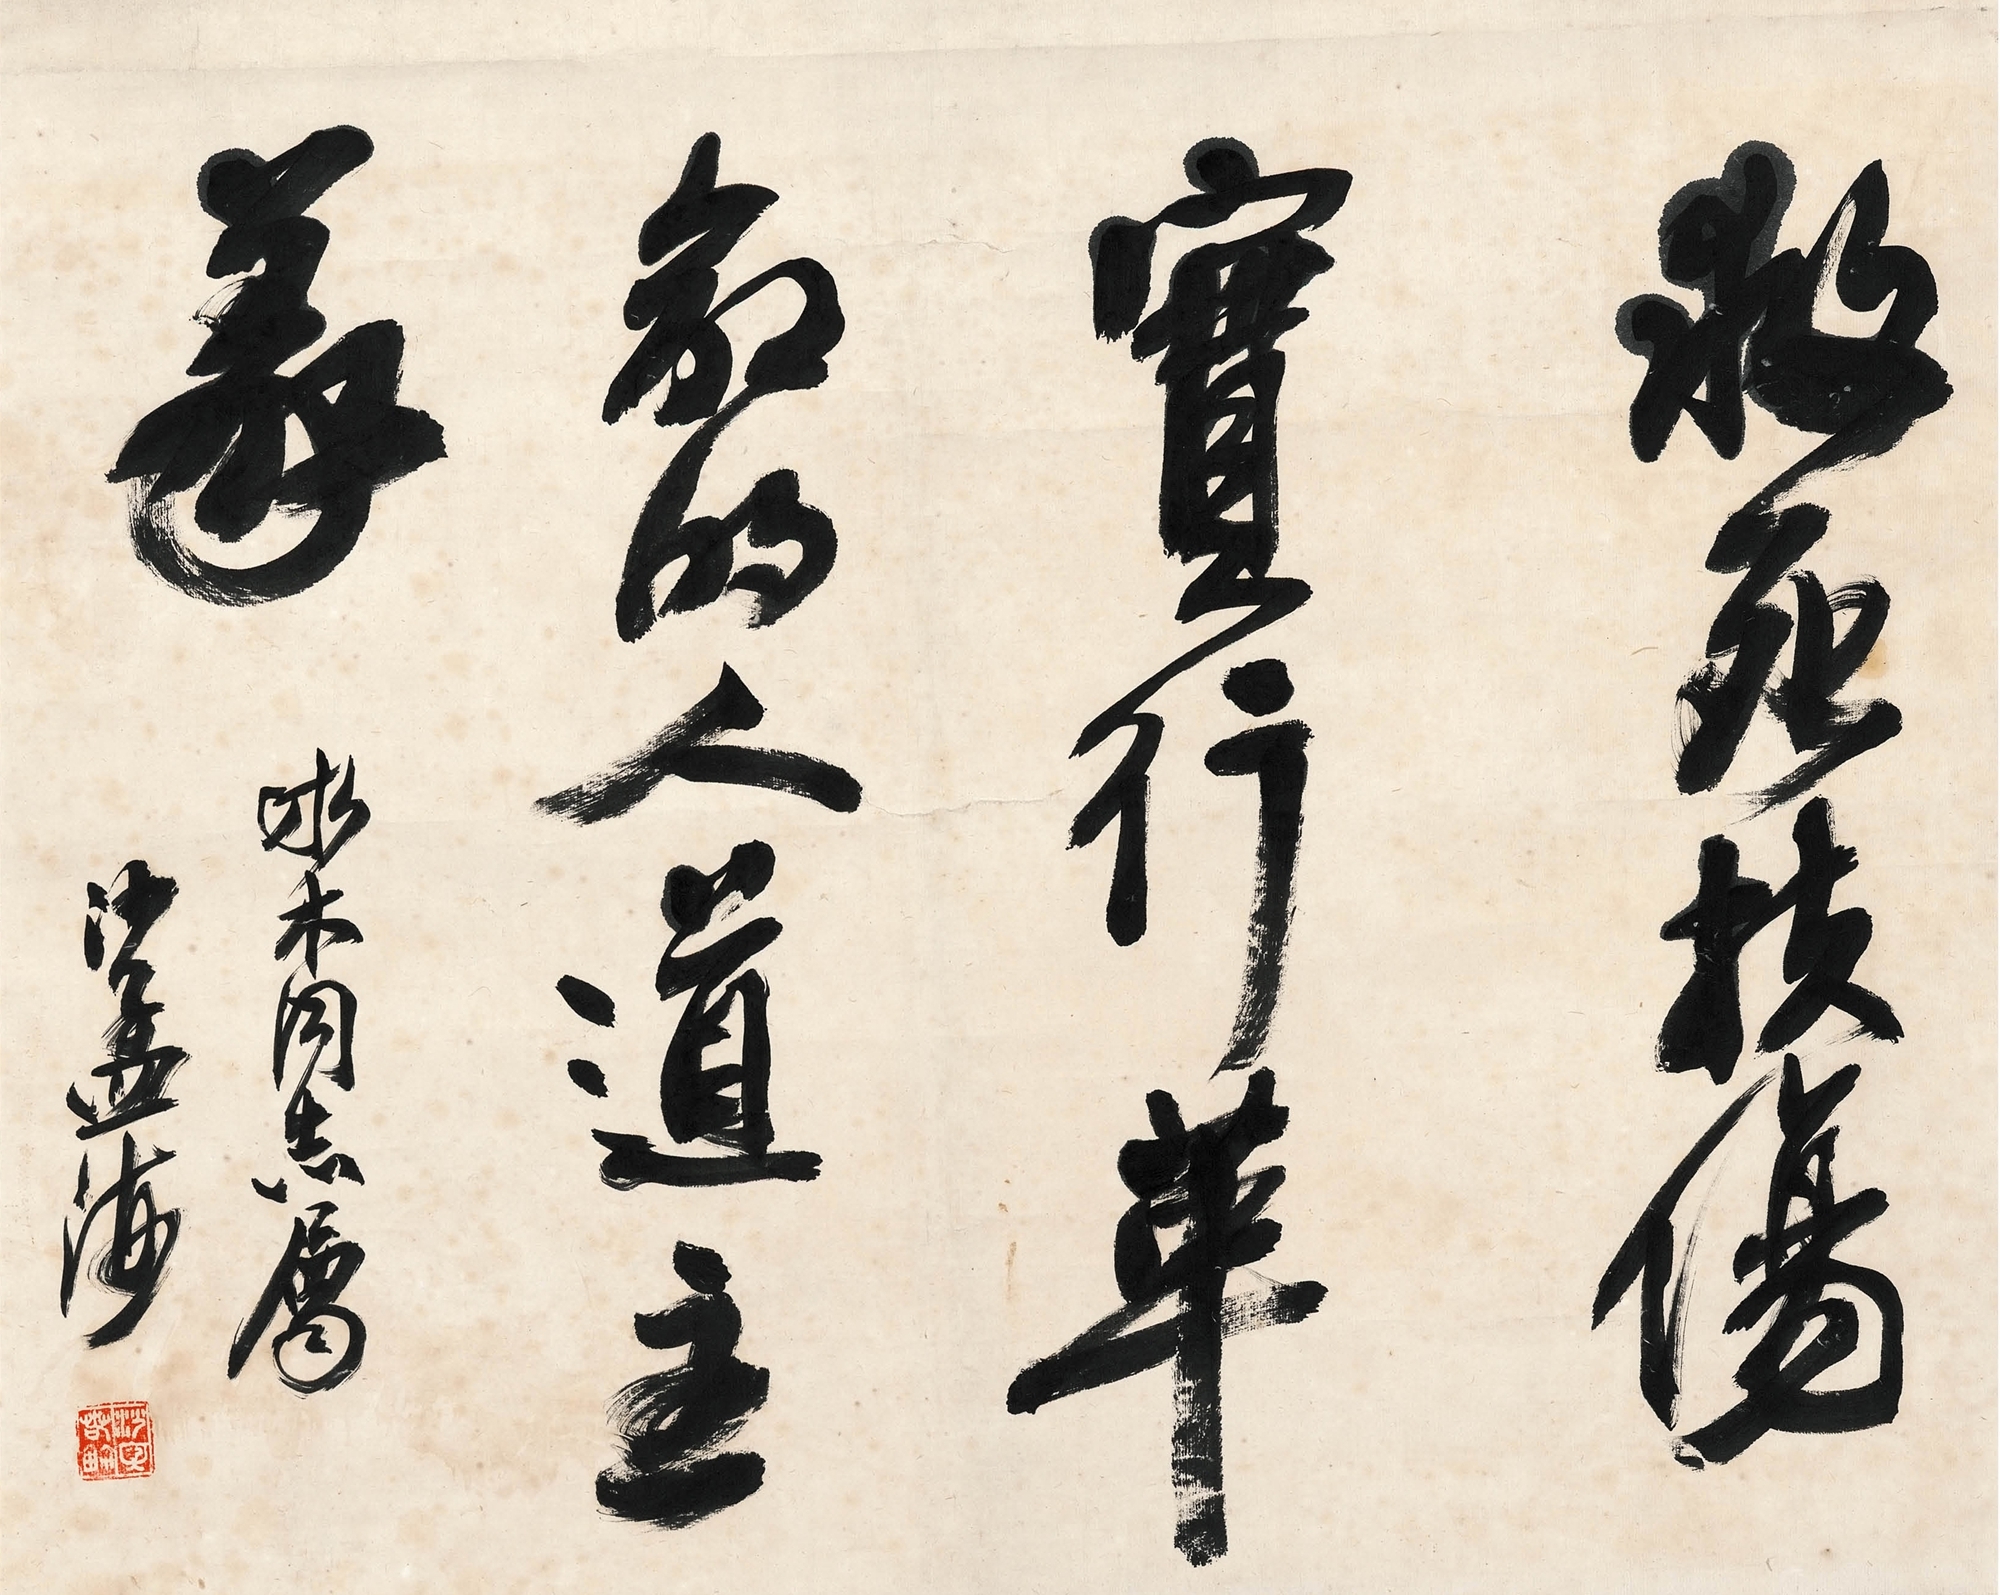 救死扶傷
實行革
命的人道主
義
木同志属
沙孟海